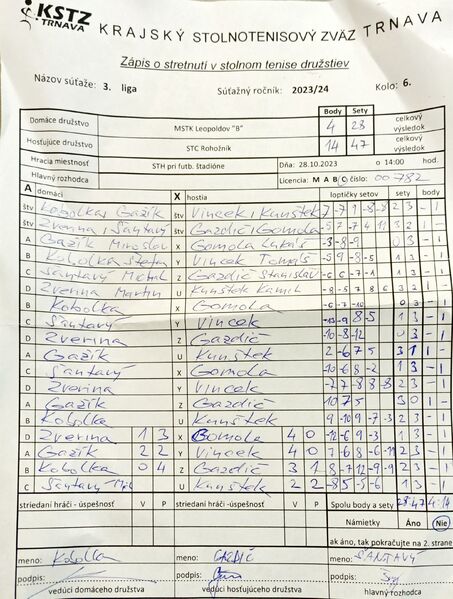 KSTZ
TRNAVA
KRAJSKÝ STOLNOTENISOVÝ ZVÄZ TRNAVA
Zápis o stretnutí v stolnom tenise družstiev
Názov súťaže: 3. liga Súťažný ročník: 2023/24 Kolo: 6.
Body Sety
Domáce družstvo MSTK Leopoldov "B" 4 28 celkový výsledok
Hosťujúce družstvo STC Rohožník 14 47 celkový výsledok
Hracia miestnosť STH pri futb. štadióne Dňa: 28.10.2023 o 14:00 hod.
Hlavný rozhodca Licencia: M A B C číslo: 00782
A domáci X hostia loptičky setov sety body
štv Kobolka, Gažík štv Vincek, Kunštek 7 -7 9 -8 -8 2 3 - 1
štv Zverina, Santavý štv Gazdič, Gomola 2 3 - 1
A Gažík Miroslav X Gomola Lukáš -3 -8 -9 0 3 - 1
B Kobolka Štefan Y Vincek Tomáš -5 9 -8 -5 1 3 - 1
C Santavý Michal Z Gazdič Stanislav -6 6 -7 -1 1 3 - 1
D Zverina Martin U Kunštek Kamil -8 -5 7 8 6 3 2 1 -
B Kobolka X Gomola -6 -7 -10 0 3 - 1
C Santavý Y Vincek -13 -9 8 -5 1 3 - 1
D Zverina Z Gazdič -10 -8 -12 0 3 - 1
A Gažík U Kunštek 2 -6 7 5 3 1 1 -
C Santavý X Gomola -10 6 -8 -2 1 3 - 1
D Zverina Y Vincek -7 7 -8 8 -8 2 3 - 1
A Gažík Z Gazdič 10 7 5 3 0 1 -
B Kobolka U Kunštek 9 -10 9 -7 -3 2 3 - 1
D Zverina 1 3 X Gomola 4 0 -12 -6 9 -3 1 3 - 1
A Gažík 2 2 Y Vincek 4 0 7 -6 8 -6 -11 2 3 - 1
B Kobolka 0 4 Z Gazdič 3 1 8 -7 12 -9 -9 2 3 - 1
C Santavý U Kunštek 2 2 -8 5 -5 -6 1 3 - 1
striedaní hráči - úspešnosť V P striedaní hráči - úspešnosť V P Spolu body a sety 28:47 4:14
Námietky Áno Nie
ak áno, tak pokračujte na 2. strane
meno: Kobolka meno: GAZDIČ meno: SANTAVÝ
podpis: podpis: podpis:
vedúci domáceho družstva vedúci hosťujúceho družstva hlavný rozhodca